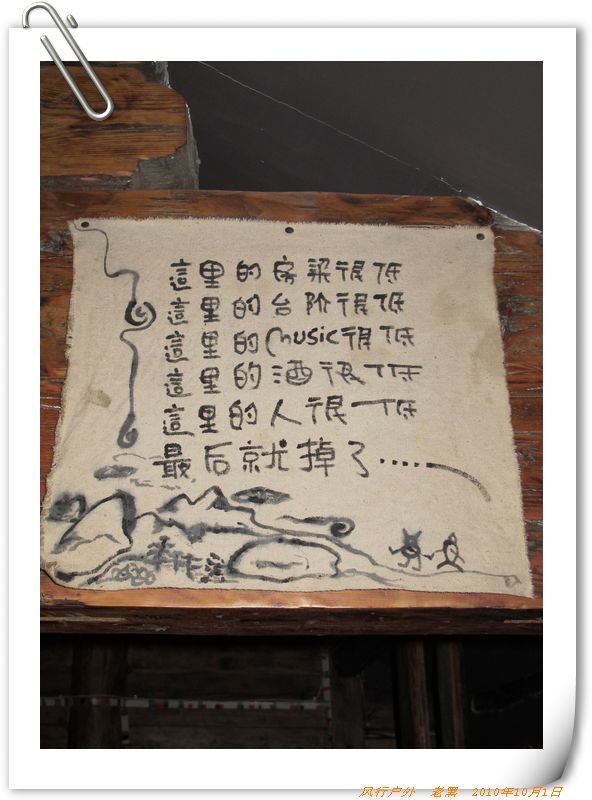 這里的房梁很低
這里的台阶很低
這里的music很低
這里的酒很低
這里的人很低
最后就掉了……
风行户外 老黑 2010年10月1日